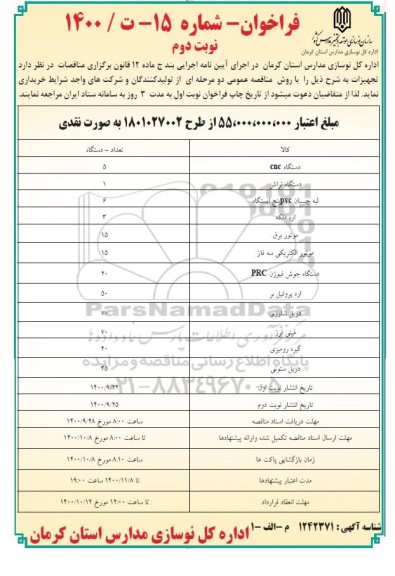 فراخوان- شماره ۱۵- ت / ۱۴۰۰
نوبت دوم
اداره کل نوسازی مدارس استان کرمان
اداره کل نوسازی مدارس استان کرمان در اجرای آیین نامه اجرایی بند ج ماده ۱۲ قانون برگزاری مناقصات در نظر دارد
تجهیزات به شرح ذیل را با روش مناقصه عمومی دو مرحله ای از تولیدکنندگان و شرکت های واجد شرایط خریداری
نماید. لذا از متقاضیان دعوت میشود از تاریخ چاپ فراخوان نوبت اول به مدت ۳ روز به سامانه ستاد ایران مراجعه نمایند.
مبلغ اعتبار ۵۵,۰۰۰,۰۰۰,۰۰۰ از طرح ۱۸۰۱۰۲۷۰۰۲ به صورت نقدی
کالا تعداد - دستگاه
دستگاه cnc ۵
دستگاه تراش ۱
لبه چسبان pvc پنج ایستگاه ۶
اره فلکه ۳
موتور برق ۱۵
موتور الکتریکی سه فاز ۱۵
دستگاه جوش فیوژن PRC ۲۰
اره پروفیل بر ۵۰
دریل شارژی ۷۰
مینی فرز ۷۰
گیره رومیزی ۴۰
دریل ستونی ۳۵
تاریخ انتشار نوبت اول ۱۴۰۰/۹/۲۴
تاریخ انتشار نوبت دوم ۱۴۰۰/۹/۲۵
مهلت دریافت اسناد مناقصه ساعت ۸:۰۰ مورخ ۱۴۰۰/۹/۲۸
مهلت ارسال اسناد مناقصه تکمیل شده وارائه پیشنهادها تا ساعت ۸:۰۰ مورخ ۱۴۰۰/۱۰/۸
زمان بازگشایی پاکت ها ساعت ۸:۱۰ مورخ ۱۴۰۰/۱۰/۸
مدت اعتبار پیشنهادها تا ۱۴۰۰/۱۱/۸ ساعت ۱۹:۰۰
مهلت انعقاد قرارداد تا ساعت ۱۴:۰۰ مورخ ۱۴۰۰/۱۰/۱۲
ParsNamadData
پایگاه اطلاع رسانی مناقصه و مزایده
۰۲۱-۸۸۳۴۹۶۷۰
شناسه آگهی : ۱۲۴۲۳۷۱ م -الف -۱ اداره کل نوسازی مدارس استان کرمان